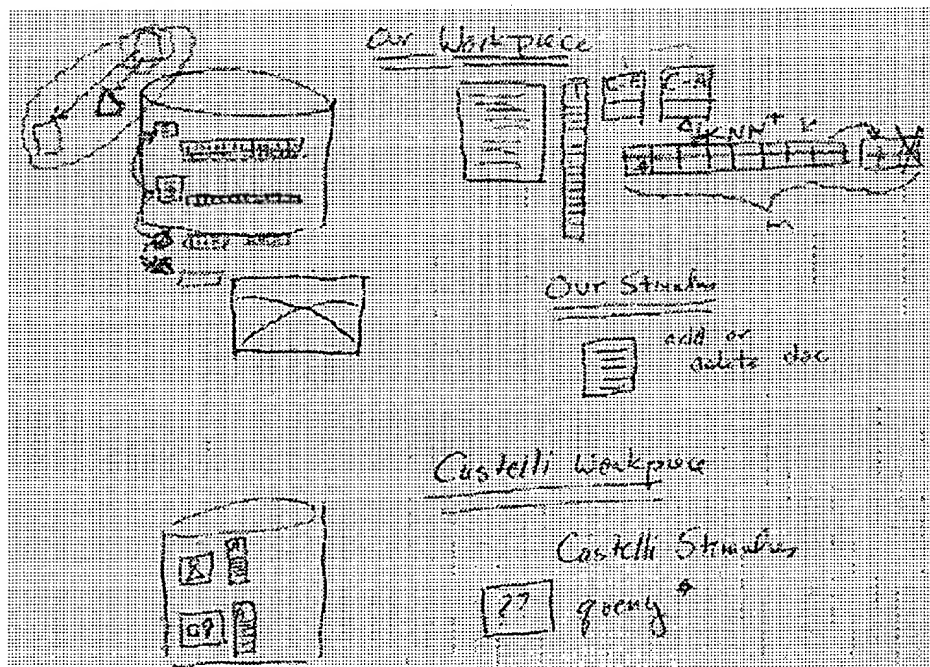 Our Workpiece
KNN+
Our Stimulus
add or
delete doc
Castelli Workpiece
Castelli Stimulus
?? query *